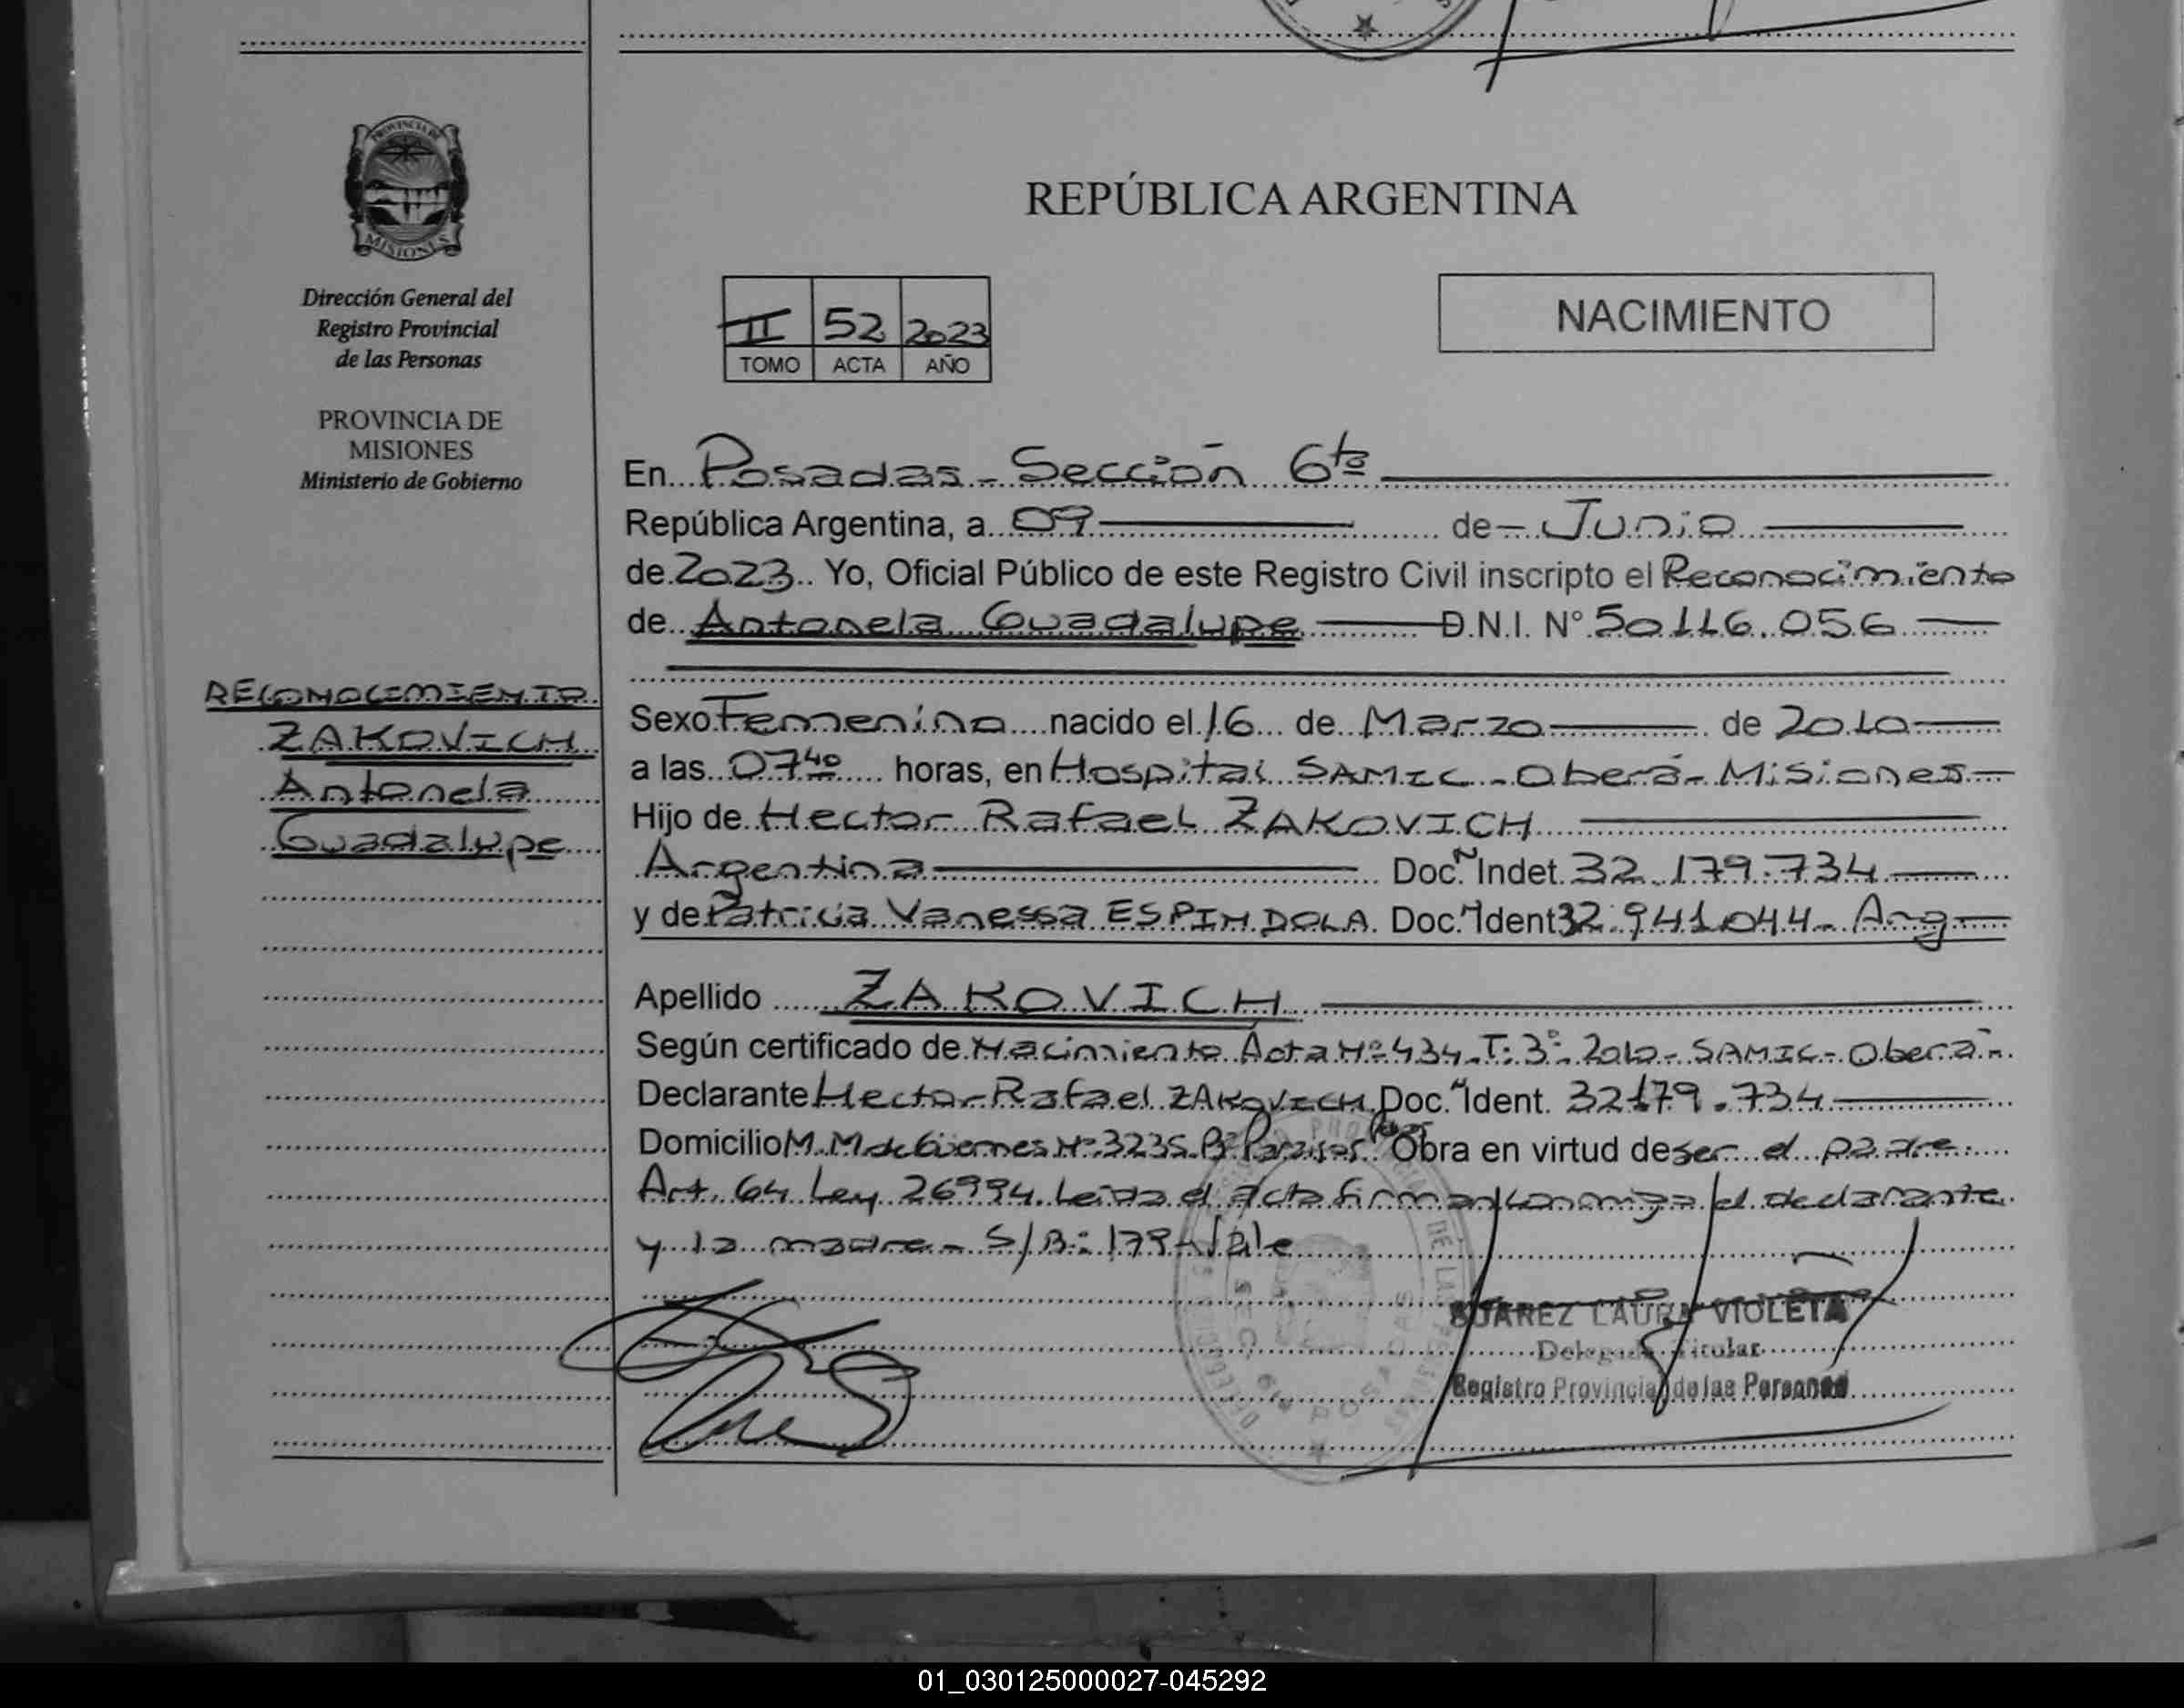 PROVINCIA DE
MISIONES
Dirección General del
Registro Provincial
de las Personas
PROVINCIA DE
MISIONES
Ministerio de Gobierno
RECONOCIMIENTO
ZAKOVICH
Antonela
Guadalupe
REPÚBLICA ARGENTINA
II 52 2023
TOMO ACTA AÑO
NACIMIENTO
En Posadas - Sección 6ta
República Argentina, a 09 de Junio
de 2023 Yo, Oficial Público de este Registro Civil inscripto el Reconocimiento
de Antonela Guadalupe D.N.I. N° 50.116.056
Sexo Femenino nacido el 16 de Marzo de 2010
a las 07 40 horas, en Hospital SAMIC - Oberá - Misiones
Hijo de Hector Rafael ZAKOVICH
Argentina Doc. N Indet. 32.179.734
y de Patricia Vanessa ESPINDOLA Doc. N Ident 32.941.044 - Arg
Apellido ZAKOVICH
Según certificado de Nacimiento Acta N° 434 - T: 3° - 2010 - SAMIC - Oberá -
Declarante Hector Rafael ZAKOVICH Doc. N Ident. 32179.734
Domicilio M.M de Güemes N° 3235 B° Paraiso Obra en virtud de ser el padre.
Art. 64 Ley 26994. Leida el acta firman conmigo el declarante
y la madre - S/B: 179 - Vale
SUAREZ LAURA VIOLETA
Delegada Titular
Registro Provincial de las Personas
SEC. 6 POSADAS
01_030125000027-045292